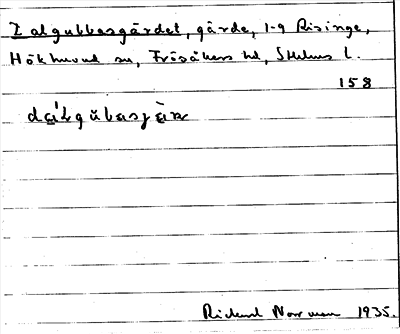 Dalgubbasgärdet, gärde, 1-9 Risinge,
Hökhuvud sn, Frösåkers hd, Sthlms l.
158
Rickard Norrman 1935.